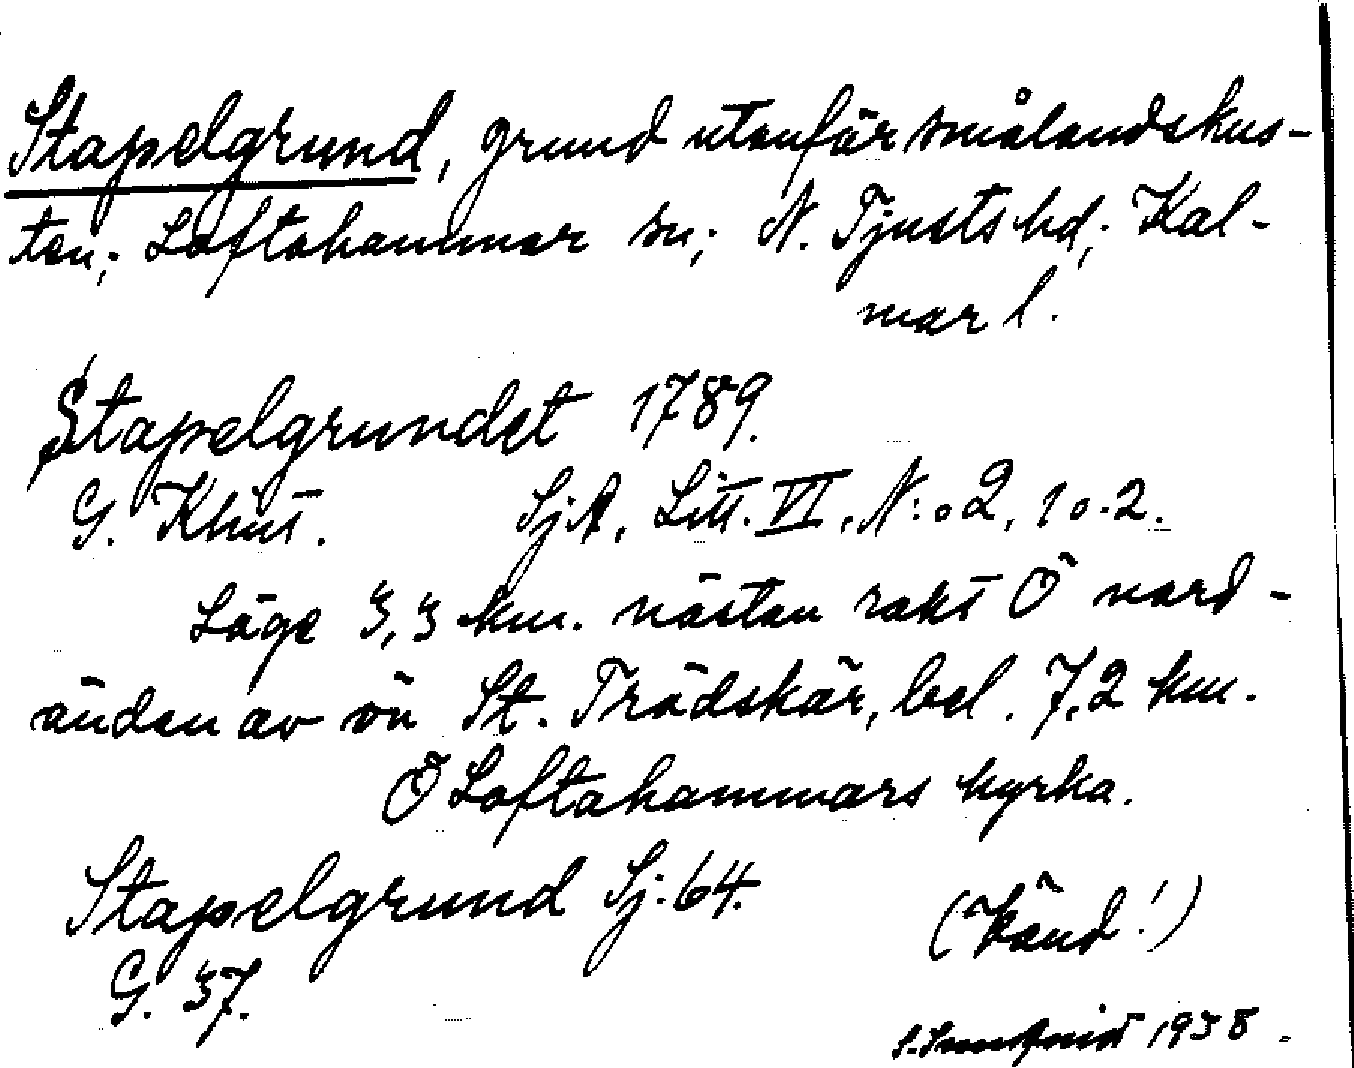 Stapelgrund, grund utanför smålandskus-
ten; Loftahammar sn; N. Tjusts hd; Kal-
mar l.
Stapelgrundet 1789.
G. Klint. SjA, Litt. VI, N:o 2, 10.2.
Läge 3,3 km. nästan rakt Ö nord-
änden av ön St. Trädskär, bel. 7,2 km.
Ö Loftahammars kyrka.
Stapelgrund Sj. 64.
G. 37.
(Känd!)
1938